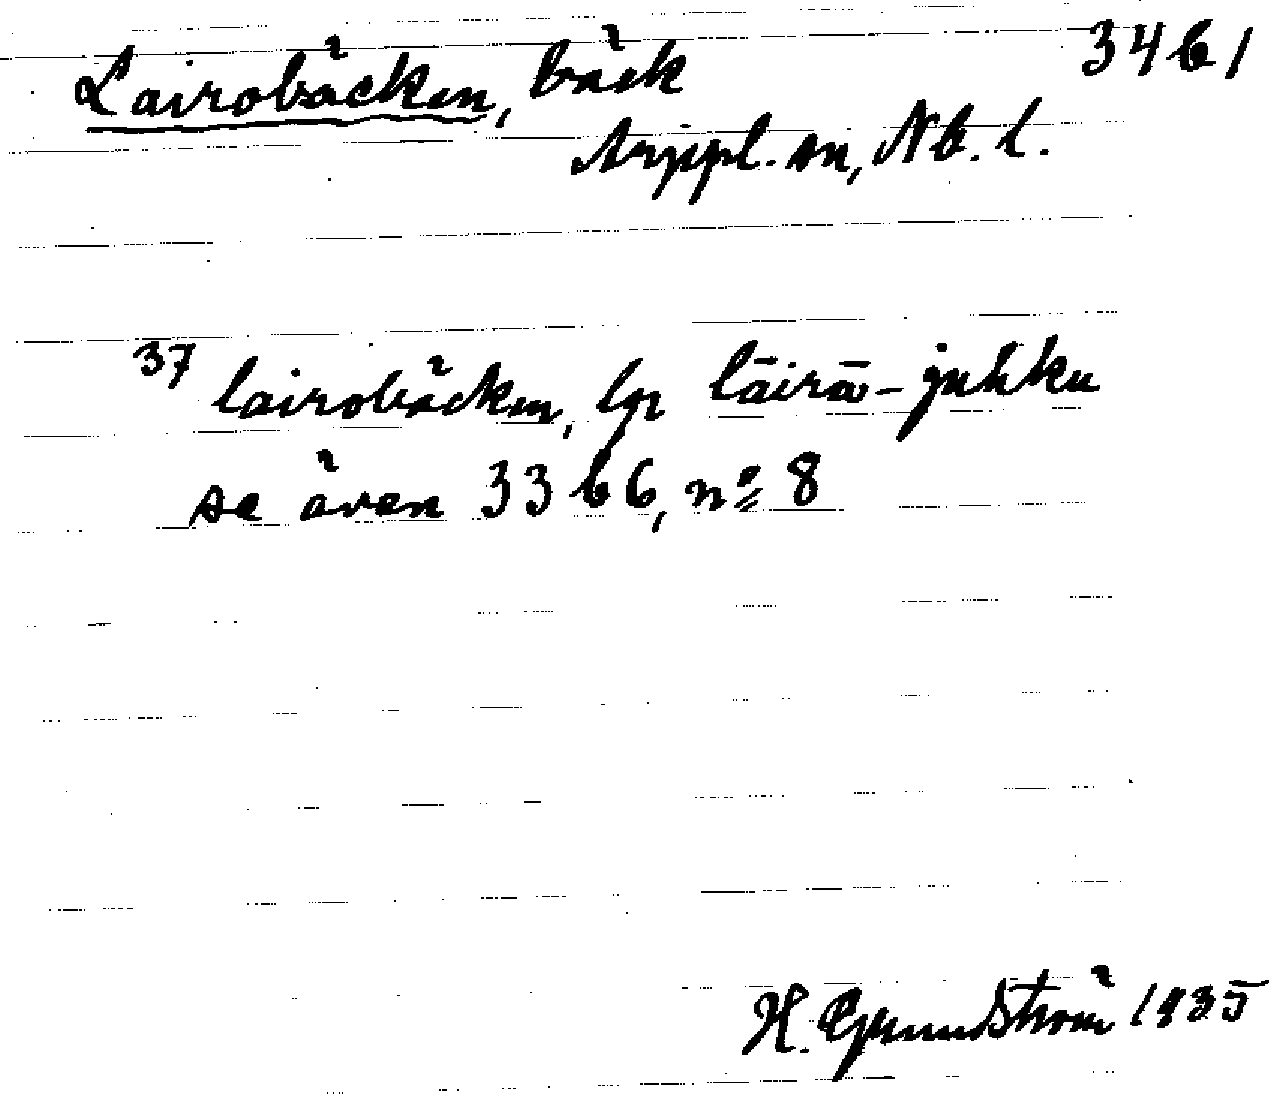 Lairobäcken, bäck 34 b 1
Arjepl. sn, Nb. l.
37 lairobäcken, lp lāirā-juhku
se även 33 b 6, nº 8
H. Grundström 1935